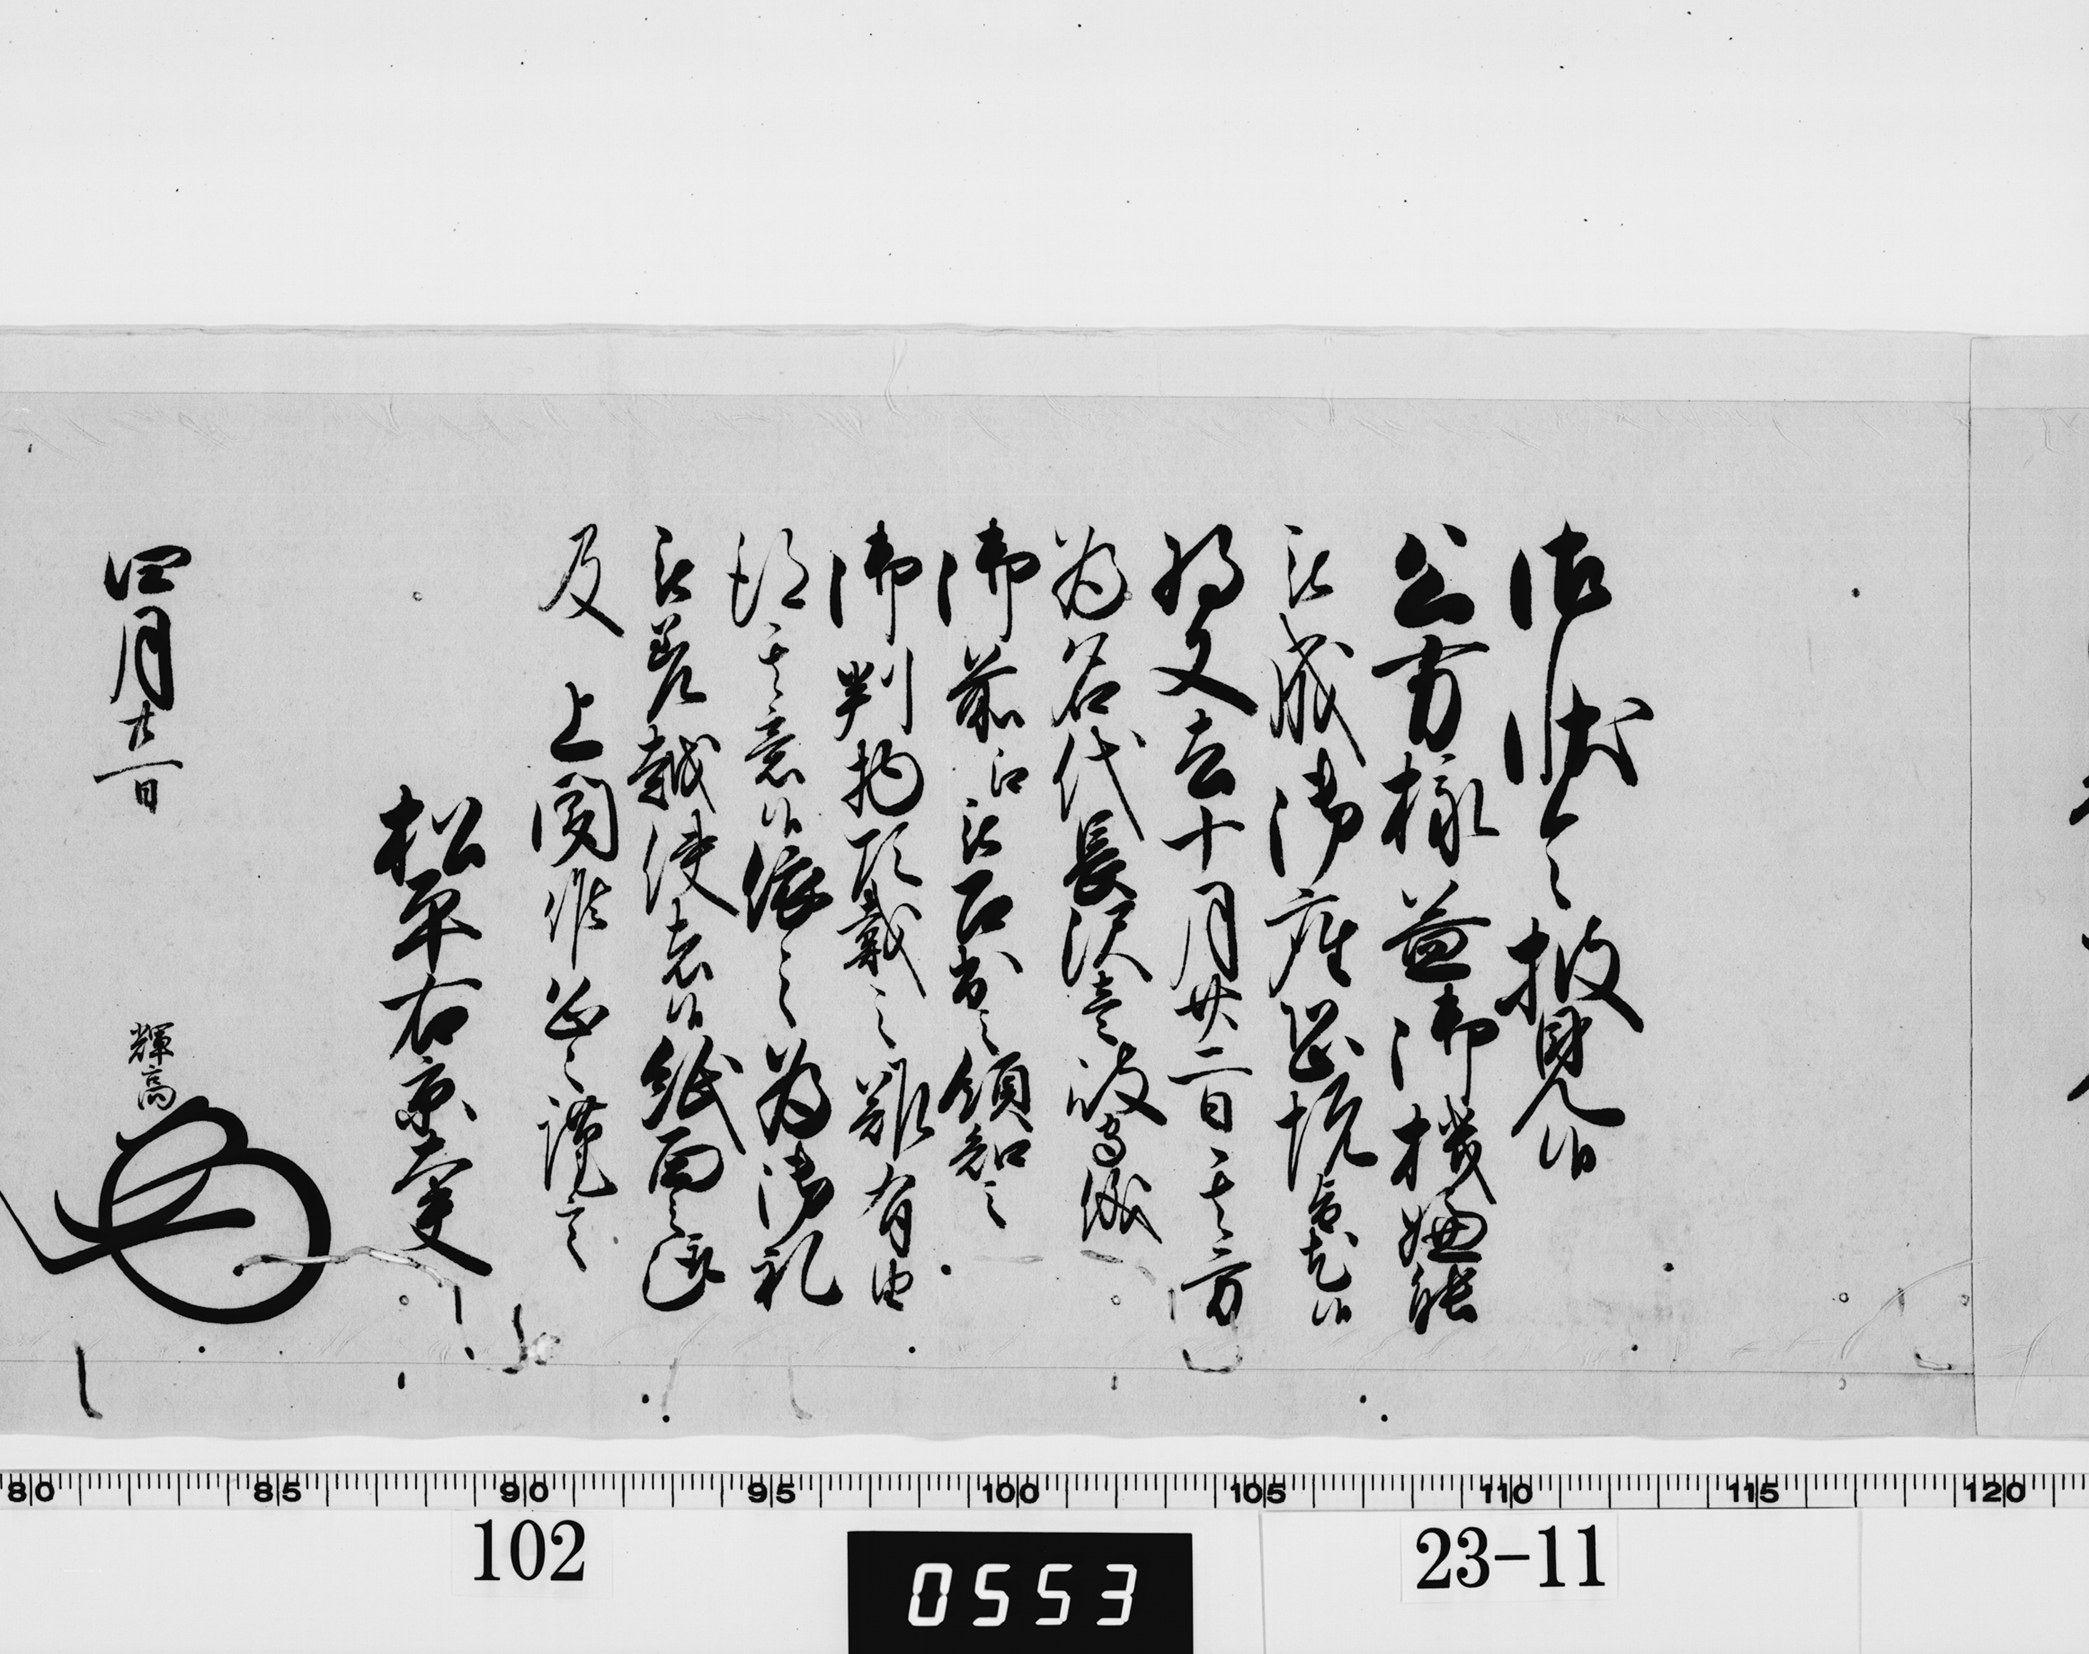 御状令披見候
公方様益御機嫌能
被成御座恐悦旨尤候
将又去十月廿二日其方
為名代長沢壱岐守儀
御前江被召出之領知之
御判物頂戴之難有由
得其意候依之為御礼
被差越使者候紙面之趣
及 上聞候恐々謹言
松平右京大夫
四月廿一日
輝高
80 85 90 95 100 105 110 115 120
102 0553 23-11